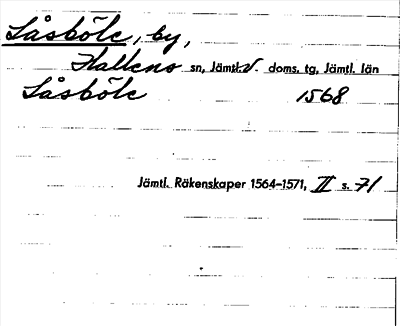 Såsböle, by,
Hallens sn, Jämtl. V. doms. tg, Jämtl. län
Såsböle 1568
Jämtl. Räkenskaper 1564-1571, II s. 71